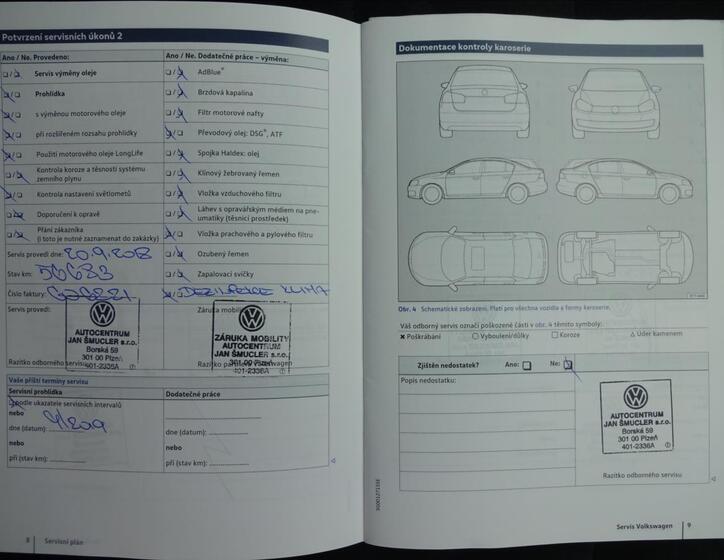 Potvrzení servisních úkonů 2
Ano / Ne. Provedeno:
Servis výměny oleje
Prohlídka
s výměnou motorového oleje
při rozšířeném rozsahu prohlídky
Použití motorového oleje LongLife
Kontrola koroze a těsnosti systému
zemního plynu
Kontrola nastavení světlometů
Doporučení k opravě
Přání zákazníka
(i toto je nutné zaznamenat do zakázky)
Servis provedl dne: 20.9.2018
Stav km: 56683
Číslo faktury:
Servis provedl:
AUTOCENTRUM
JAN ŠMUCLER s.r.o.
Borská 59
301 00 Plzeň
401-2336A
Razítko odborného servisu
Ano / Ne. Dodatečné práce – výměna:
AdBlue®
Brzdová kapalina
Filtr motorové nafty
Převodový olej: DSG®, ATF
Spojka Haldex: olej
Klínový žebrovaný řemen
Vložka vzduchového filtru
Láhev s opravářským médiem na pne-
umatiky (těsnicí prostředek)
Vložka prachového a pylového filtru
Ozubený řemen
Zapalovací svíčky
DEZINFEKCE KLIMA
Záruka mobility
ZÁRUKA MOBILITY
AUTOCENTRUM
JAN ŠMUCLER s.r.o.
301 00 Plzeň
401-2336A
Vaše příští termíny servisu
Servisní prohlídka
podle ukazatele servisních intervalů
nebo
dne (datum):
nebo
při (stav km):
Dodatečné práce
dne (datum):
nebo
při (stav km):
8 Servisní plán
Dokumentace kontroly karoserie
Obr. 4 Schematické zobrazení. Platí pro všechna vozidla a formy karoserie.
Váš odborný servis označí poškozené části v obr. 4 těmito symboly:
✖ Poškrábání ○ Vyboulení/důlky □ Koroze △ Úder kamenem
Zjištěn nedostatek? Ano: Ne:
Popis nedostatku:
AUTOCENTRUM
JAN ŠMUCLER s.r.o.
Borská 59
301 00 Plzeň
401-2336A
Razítko odborného servisu
Servis Volkswagen 9